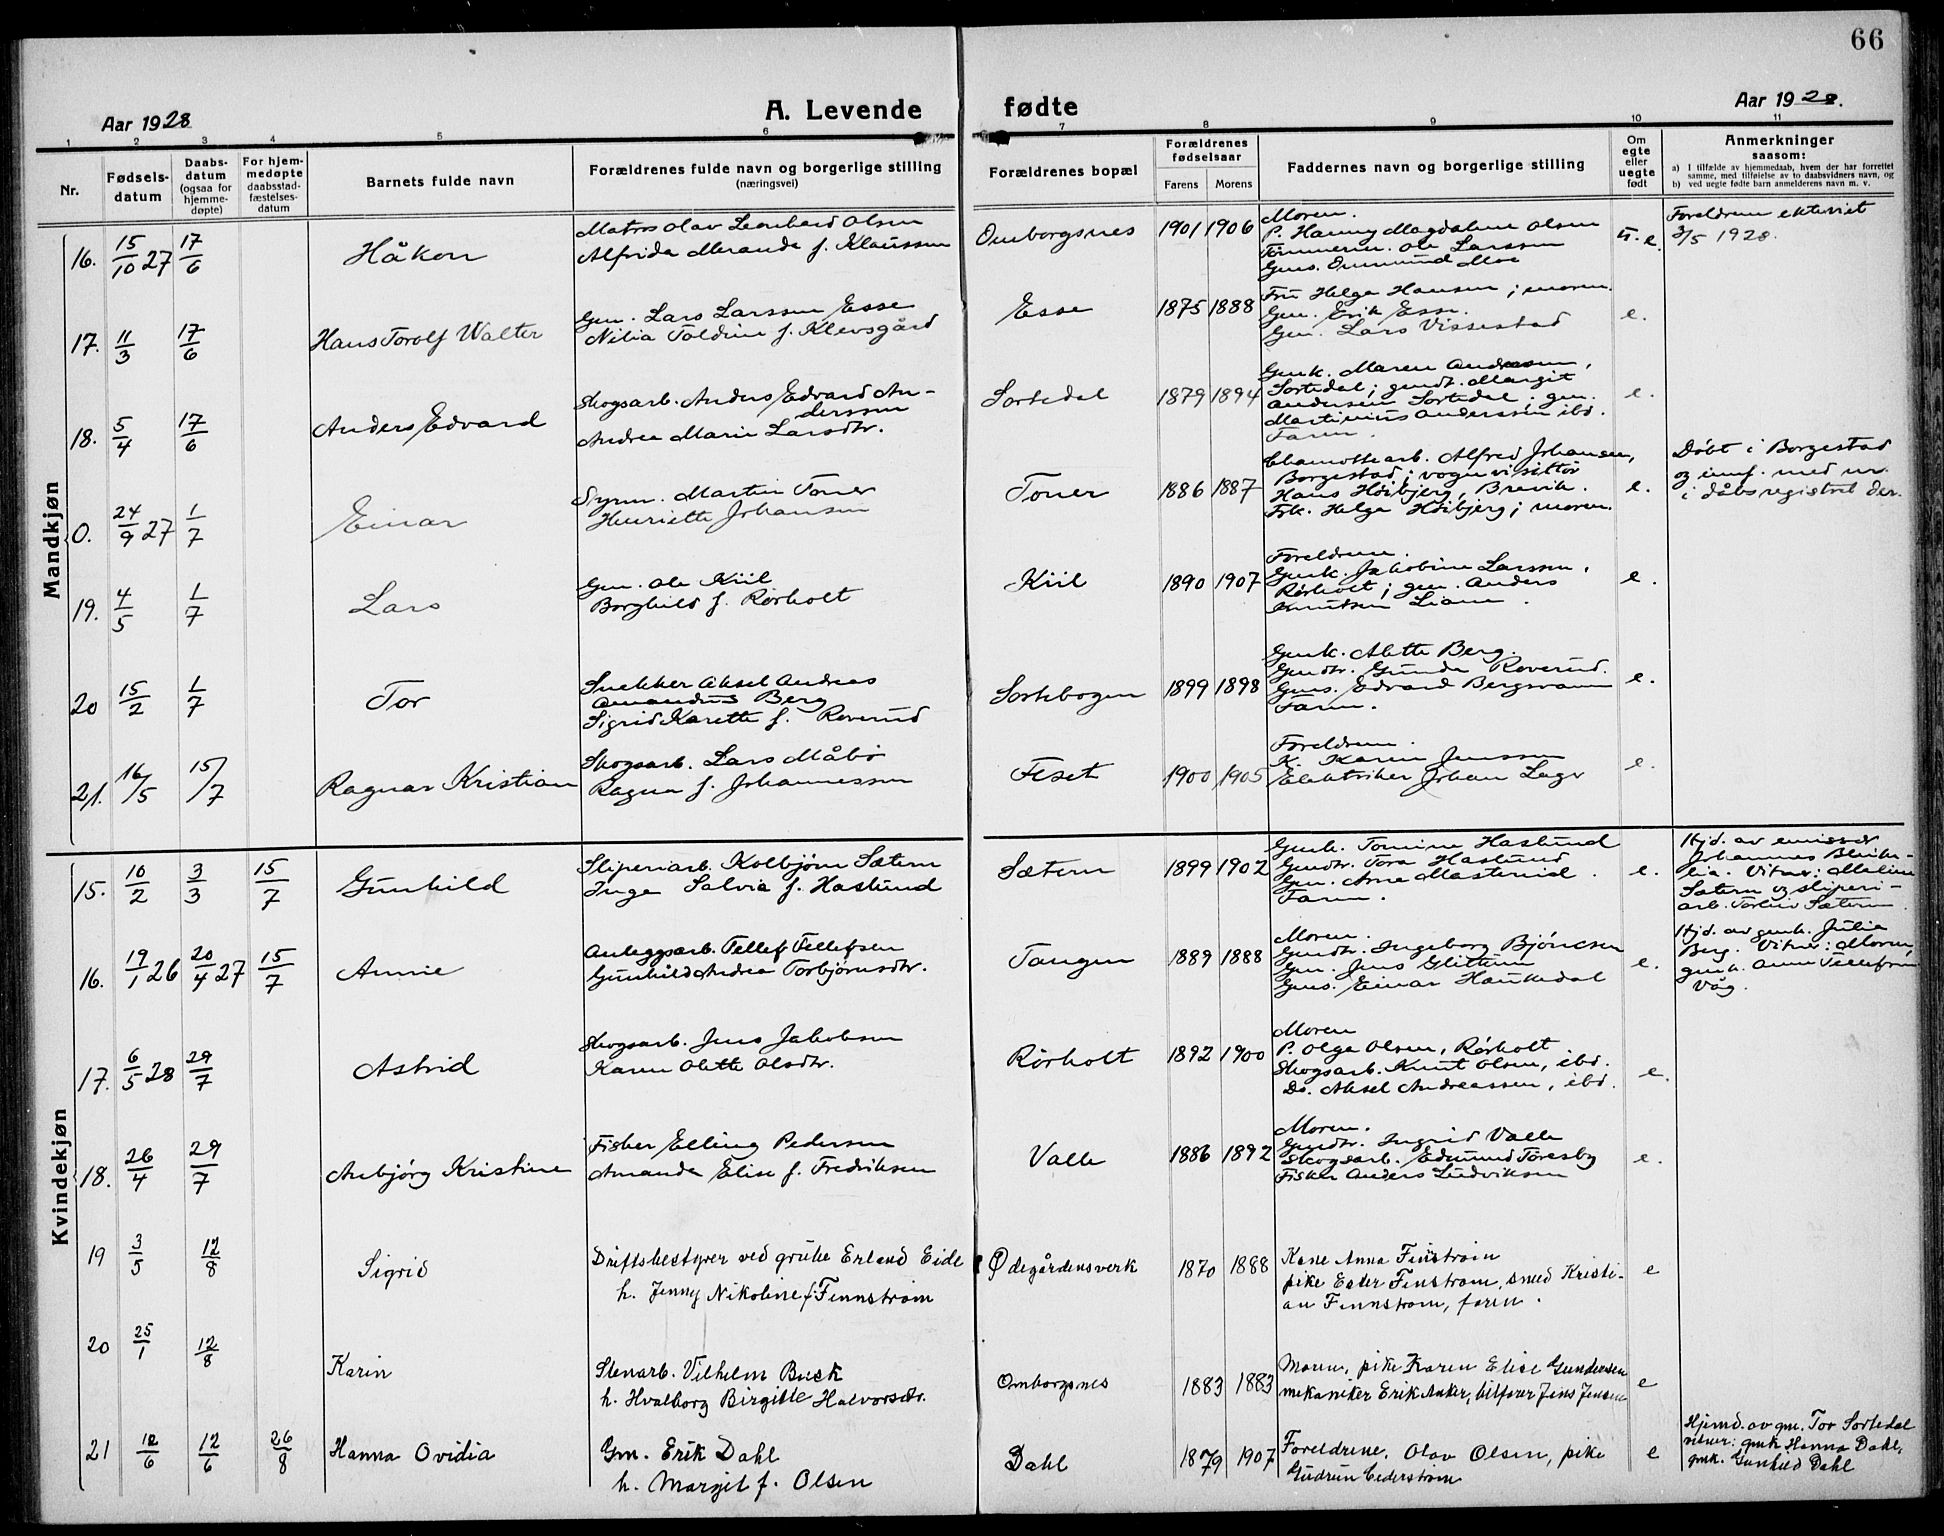 66
Aar 1928
A. Levende fødte
Aar 1928.
1 2 3 4 5 6 7 8 9 10 11
Nr.
Fødsels-
datum
Daabs-
datum
(ogsaa for
hjemme-
døpte)
For hjem-
medøpte
daabsstad-
fæstelses-
datum
Barnets fulde navn
Forældrenes fulde navn og borgerlige stilling
(næringsvei)
Forældrenes bopæl
Forældrenes
fødselsaar
Farens Morens
Faddernes navn og borgerlige stilling
Om
egte
eller
uegte
født
Anmerkninger
saasom:
a) I tilfælde av hjemmedaab, hvem der har forrettet
samme, med tilføielse av to daabsvidners navn, og
b) ved uegte fødte barn anmelderens navn m. v.
Mandkjøn
16. 15/10 27 17/6 Håkon
Matros Olav Leonhard Olsen
Alfrida Merande f. Klaussen
Omborgsnes 1901 1906
Moren.
P. Hanny Magdalene Olsen
Tømmerm. Ole Larssen
Gms. Moe
u. e.
Foreldrene ekteviet
3/5 1928.
17. 11/3 17/6 Hans Torolf Walter
Gm. Lars Larssen Esse
Nilia Toldine f. Klevsgård
Esse 1875 1888
Fru Helga Hansen; moren.
Gm. Erik Esse.
Gm. Lars Vissestad
e.
18. 5/4 17/6 Anders Edvard
Skogsarb. Anders Edvard An-
derssen
Andrea Marie Larsdtr.
Sortedal 1879 1894
Gmk. Maren Andressen,
Sortedal; gmdt. Margit
Andersen Sortedal; gm.
Martinius Anderssen ibd.
Faren.
e.
0. 24/9 27 1/7 Einar
Syrm. Martin Toner
Henriette Johansen
Toner 1886 1887
Chamottearb. Alfred Johansen,
Borgestad; vognvisitør
Hans Høibjerg, Brevik.
Frk. Helga Høibjerg; moren.
e.
Døbt i Borgestad
og innf. med nr.
i dåbsregistret der.
19. 4/5 1/7 Lars
Gm. Ole Kiil
Borghild f. Rørholt
Kiil 1890 1907
Foreldrene.
Gmk. Jakobine Larssen,
Rørholt; gm. Anders
Knutsen Liane.
e.
20 15/2 1/7 Tor
Snekker Aksel Andreas
Amandus Berg
Sigrid Karette f. Roverud
Sortebogen 1899 1898
Gmk. Alette Berg.
Gmdtr. Gunda Roverud.
Gms. Edvard Bergsvann
Faren.
e.
21. 16/5 15/7 Ragnar Kristian
Skogsarb. Lars Måbø
Ragna f. Johannessen
Feset 1900 1905
Foreldrene.
K. Karen Jenssen
Elektriker Johan Lager
e.
Kvindekjøn
15. 10/2 3/3 15/7 Gunhild
Sliperiarb. Kolbjørn Sætern
Inga Salvia f. Haslund
Sætern 1899 1902
Gmk. Tomine Haslund
Gmdtr. Tora Haslund
Gm. Arne Mastereid.
Faren.
e.
Hjd. av emissær
Johannes
Vitner: Meline
Sætern og sliperi-
arb. Torleiv Sætern.
16. 19/1 26 20/4 27 15/7 Annie
Anleggsarb. Tellef Tellefsen
Gunhild Andrea Torbjørnsdtr.
Tangen 1889 1888
Moren.
Gmdtr. Ingeborg Bjørnsen
Gm. Jens Glittum
Gms. Einar Haukedal
e.
Hjd. av gmk. Julia
Berg. Vitner: Moren,
gmk. Anne Tellefsen
Våg.
17. 6/5 28 29/7 Astrid
Skogsarb. Jens Jakobsen
Karen Olette Olsdtr.
Rørholt 1892 1900
Moren
P. Olga Olsen, Rørholt.
Skogsarb. Knut Olsen, ibd.
Do. Aksel Andreassen, ibd.
e.
18. 26/4 29/7 Anbjørg Kristine
Fisker Elling Pedersen
Amanda Elise f. Fredriksen
Valle 1886 1892
Moren.
Gmdtr. Ingrid Valle
Skogsarb. Edmund Foresby
Fisker Anders Ludviksen
e.
19 3/5 12/8 Sigrid
Driftsbestyrer ved grube Erland Eide
h. Jenny Nikoline f. Finnstrøm
Ødegårdensverk 1870 1888
Kone Anna Finstrøm
pike Ester Finstrøm, smed Kristi-
an Finnstrøm, faren.
e
20 25/1 12/8 Karin
Stenarb. Vilhelm Buck
h. Hvalborg Birgitte Halvorsdtr.
Omborgsnes 1883 1883
Moren, pike Karen Elise Gundersen
mekaniker Erik Anker, bilfører Jens Jensen
e
21 12/6 12/6 26/8 Hanna Ovidia
Gm. Erik Dahl
h. Margit f. Olsen
Dahl 1879 1907
Foreldrene, Olav Olsen, pike
Gudrun Cederstrøm
e
Hjemd. av gm. Tor Sortedal
vitner: gmk. Hanna Dahl,
gmk. Gunhild Dahl